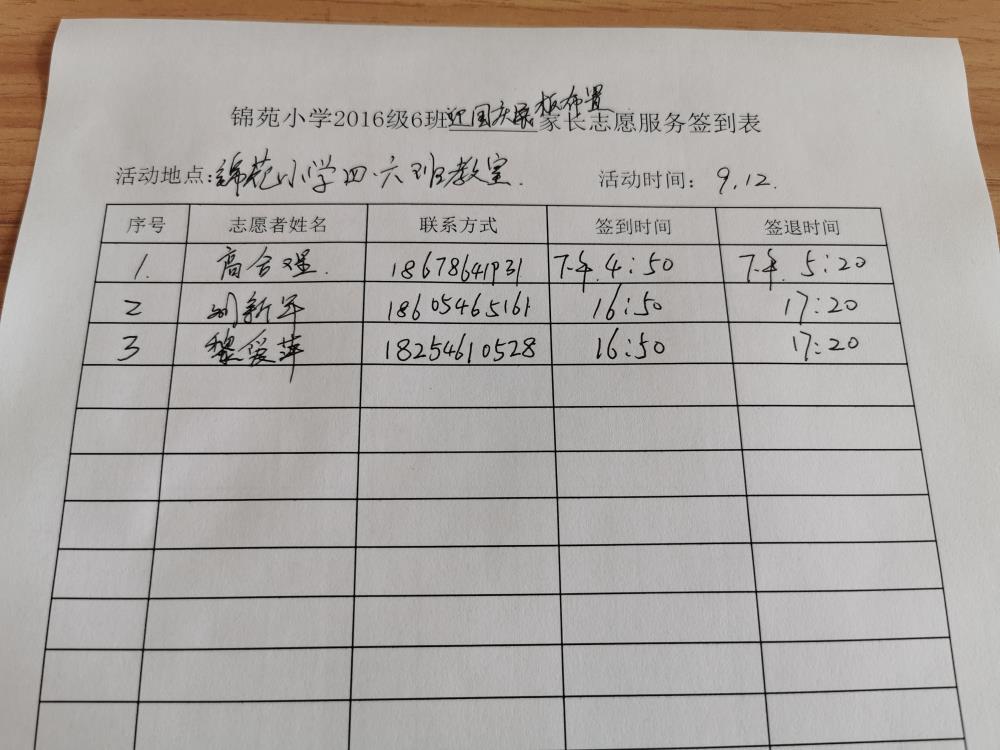 锦苑小学2016级6班迎国庆展板布置家长志愿服务签到表
活动地点:锦苑小学四.六班教室. 活动时间: 9.12.
序号 志愿者姓名 联系方式 签到时间 签退时间
1. 高合理. 18678641931 下午.4:50 下午.5:20
2 刘新军 18605465161 16:50 17:20
3 黎爱萍 18254610528 16:50 17:20